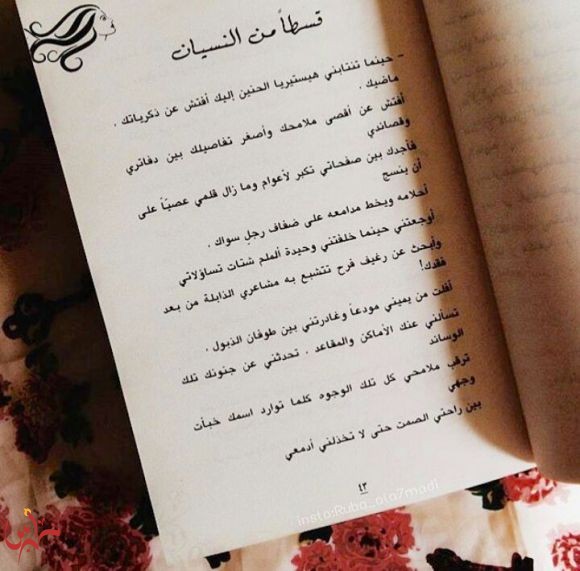 قسطاً من النسيان
- حينما تنتابني هيستيريا الحنين إليك أفتش عن ذكرياتك ،
ماضيك .
أفتش عن أقصى ملامحك وأصغر تفاصيلك بين دفاتري
وقصائدي
فأجدك بين صفحاتي تكبر لأعوام وما زال قلمي عصيّاً على
أن ينسج
أحلامه ويخط مدامعه على ضفاف رجلٍ سواك .
أوجعتني حينما خلفتني وحيدة ألملم شتات تساؤلاتي
وأبحث عن رغيف فرح تتشبع به مشاعري الذابلة من بعد
فقدك!
أفلت من يميني مودعاً وغادرتني بين طوفان الذبول .
تسألني عنك الأماكن والمقاعد . تحدثني عن جنونك تلك
الوسائد
ترقب ملامحي كل تلك الوجوه كلما توارد اسمك خبأت
وجهي
بين راحتي الصمت حتى لا تخذلني أدمعي
٤٣
insta:Ruba_ala7madi